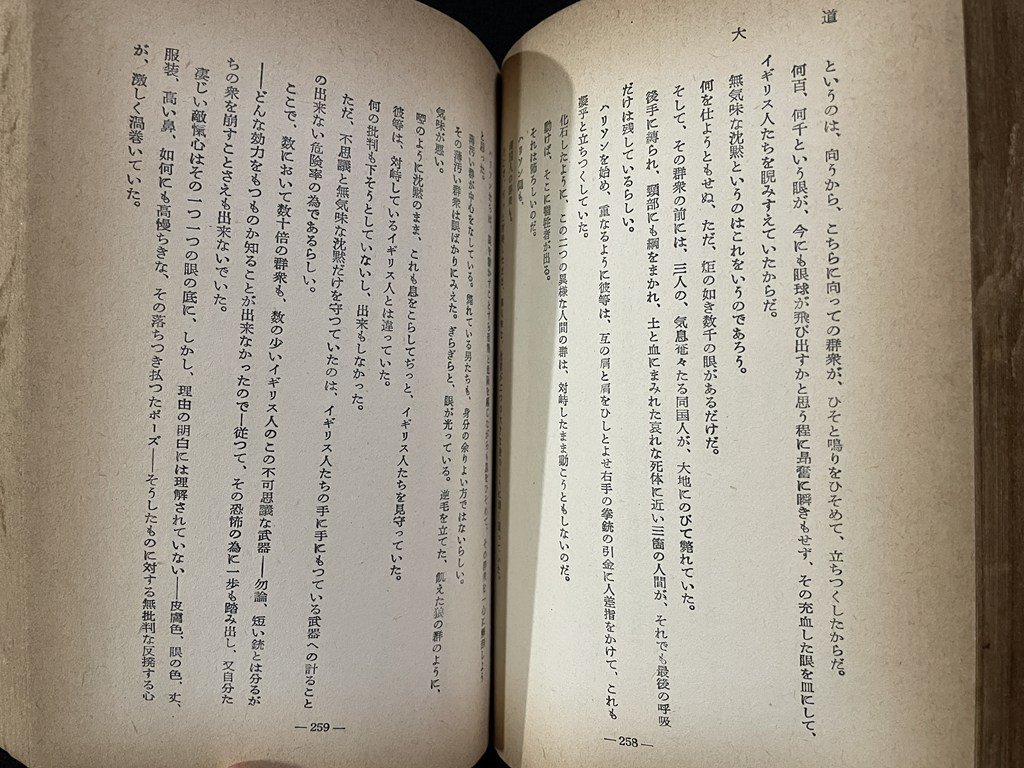 大
道
というのは、向うから、こちらに向っての群衆が、ひそと鳴りをひそめて、立ちつくしたからだ。
何百、何千という眼が、今にも眼球が飛び出すかと思う程に昻奮に瞬きもせず、その充血した眼を皿にして、
イギリス人たちを睨みすえていたからだ。
無気味な沈黙というのはこれをいうのであろう。
何を仕ようともせぬ、ただ、炬の如き数千の眼があるだけだ。
そして、その群衆の前には、三人の、気息奄々たる同国人が、大地にのびて斃れていた。
後手に縛られ、頸部にも綱をまかれ、土と血にまみれた哀れな死体に近い三箇の人間が、それでも最後の呼吸
だけは残しているらしい。
ハリソンを始め、重なるように彼等は、互の肩と肩をひしとよせ右手の拳銃の引金に人差指をかけて、これも
凝乎と立ちつくしていた。
化石したように、この二つの異様な人間の群は、対峙したまま動こうともしないのだ。
動けば、そこに犠牲者が出る。
それは怖ろしいのだ。
―258―
と思った。
薄汚い群が中心をなしている。斃れている男たちも、身分の余りよい方ではないらしい。
その薄汚い群衆は眼ばかりにみえた。ぎらぎらと、眼が光っている。逆毛を立てた、飢えた狼の群のように、
気味が悪い。
啞のように沈黙のまま、これも息をこらしてぢっと、イギリス人たちを見守っていた。
彼等は、対峙しているイギリス人とは違っていた。
何の批判も下そうとしていないし、出来もしなかった。
ただ、不思議と無気味な沈黙だけを守つていたのは、イギリス人たちの手に手にもつている武器への計ること
の出来ない危険率の為であるらしい。
ここで、数において数十倍の群衆も、数の少いイギリス人のこの不可思議な武器――勿論、短い銃とは分るが
――どんな効力をもつものか知ることが出来なかったので――従つて、その恐怖の為に一歩も踏み出し、又自分た
ちの衆を崩すことさえも出来ないでいた。
凄じい敵愾心はその一つ一つの眼の底に、しかし、理由の明白には理解されていない――皮膚色、眼の色、丈、
服装、高い鼻、如何にも高慢ちきな、その落ちつき払つたポーズ――そうしたものに対する無批判な反撥する心
が、激しく渦巻いていた。
―259―